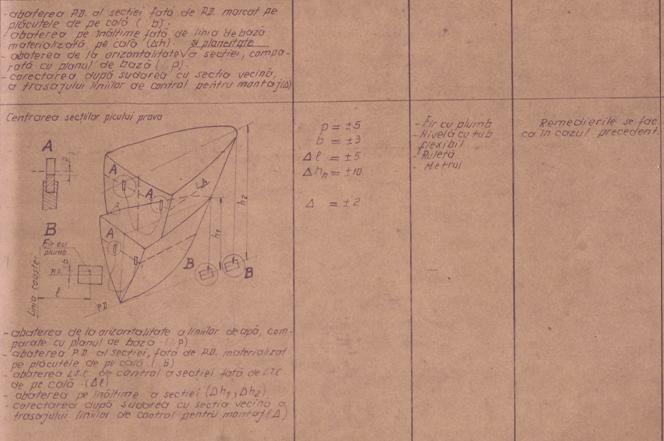 - abaterea P.D. al secției față de P.D. marcat pe
plăcuțele de pe cală ( b).
- abaterea pe înălțime față de linia de bază
materializată pe cală (Δh) și planeitate
- abaterea de la orizontalitate a secției, compa-
rată cu planul de bază ( p).
- corectarea după sudarea cu secția vecină,
a trasajului liniilor de control pentru montaj(Δ)
Centrarea secțiilor picului prova
A
A
A
A
B
Fir cu
plumb
b
P.D.
l
Linia coastei
P.D.
B
B
h1
h2
p = ±5
b = ±3
Δl = ±5
Δhn = ±10
Δ = ±2
- Fir cu plumb
- Nivelă cu tub
flexibil
- Ruletă
- Metrul
Remedierile se fac
ca în cazul precedent.
- abaterea de la orizontalitate a liniilor de apă, com-
parate cu planul de bază ( p)
- abaterea P.D. al secției, față de P.D. materializat
pe plăcuțele de pe cală ( b)
- abaterea L.T.C. de control a secției față de L.T.C.
de pe cală (Δl)
- abaterea pe înălțime a secției (Δh1, Δh2)
- corectarea după sudarea cu secția vecină a
trasajului liniilor de control pentru montaj(Δ)